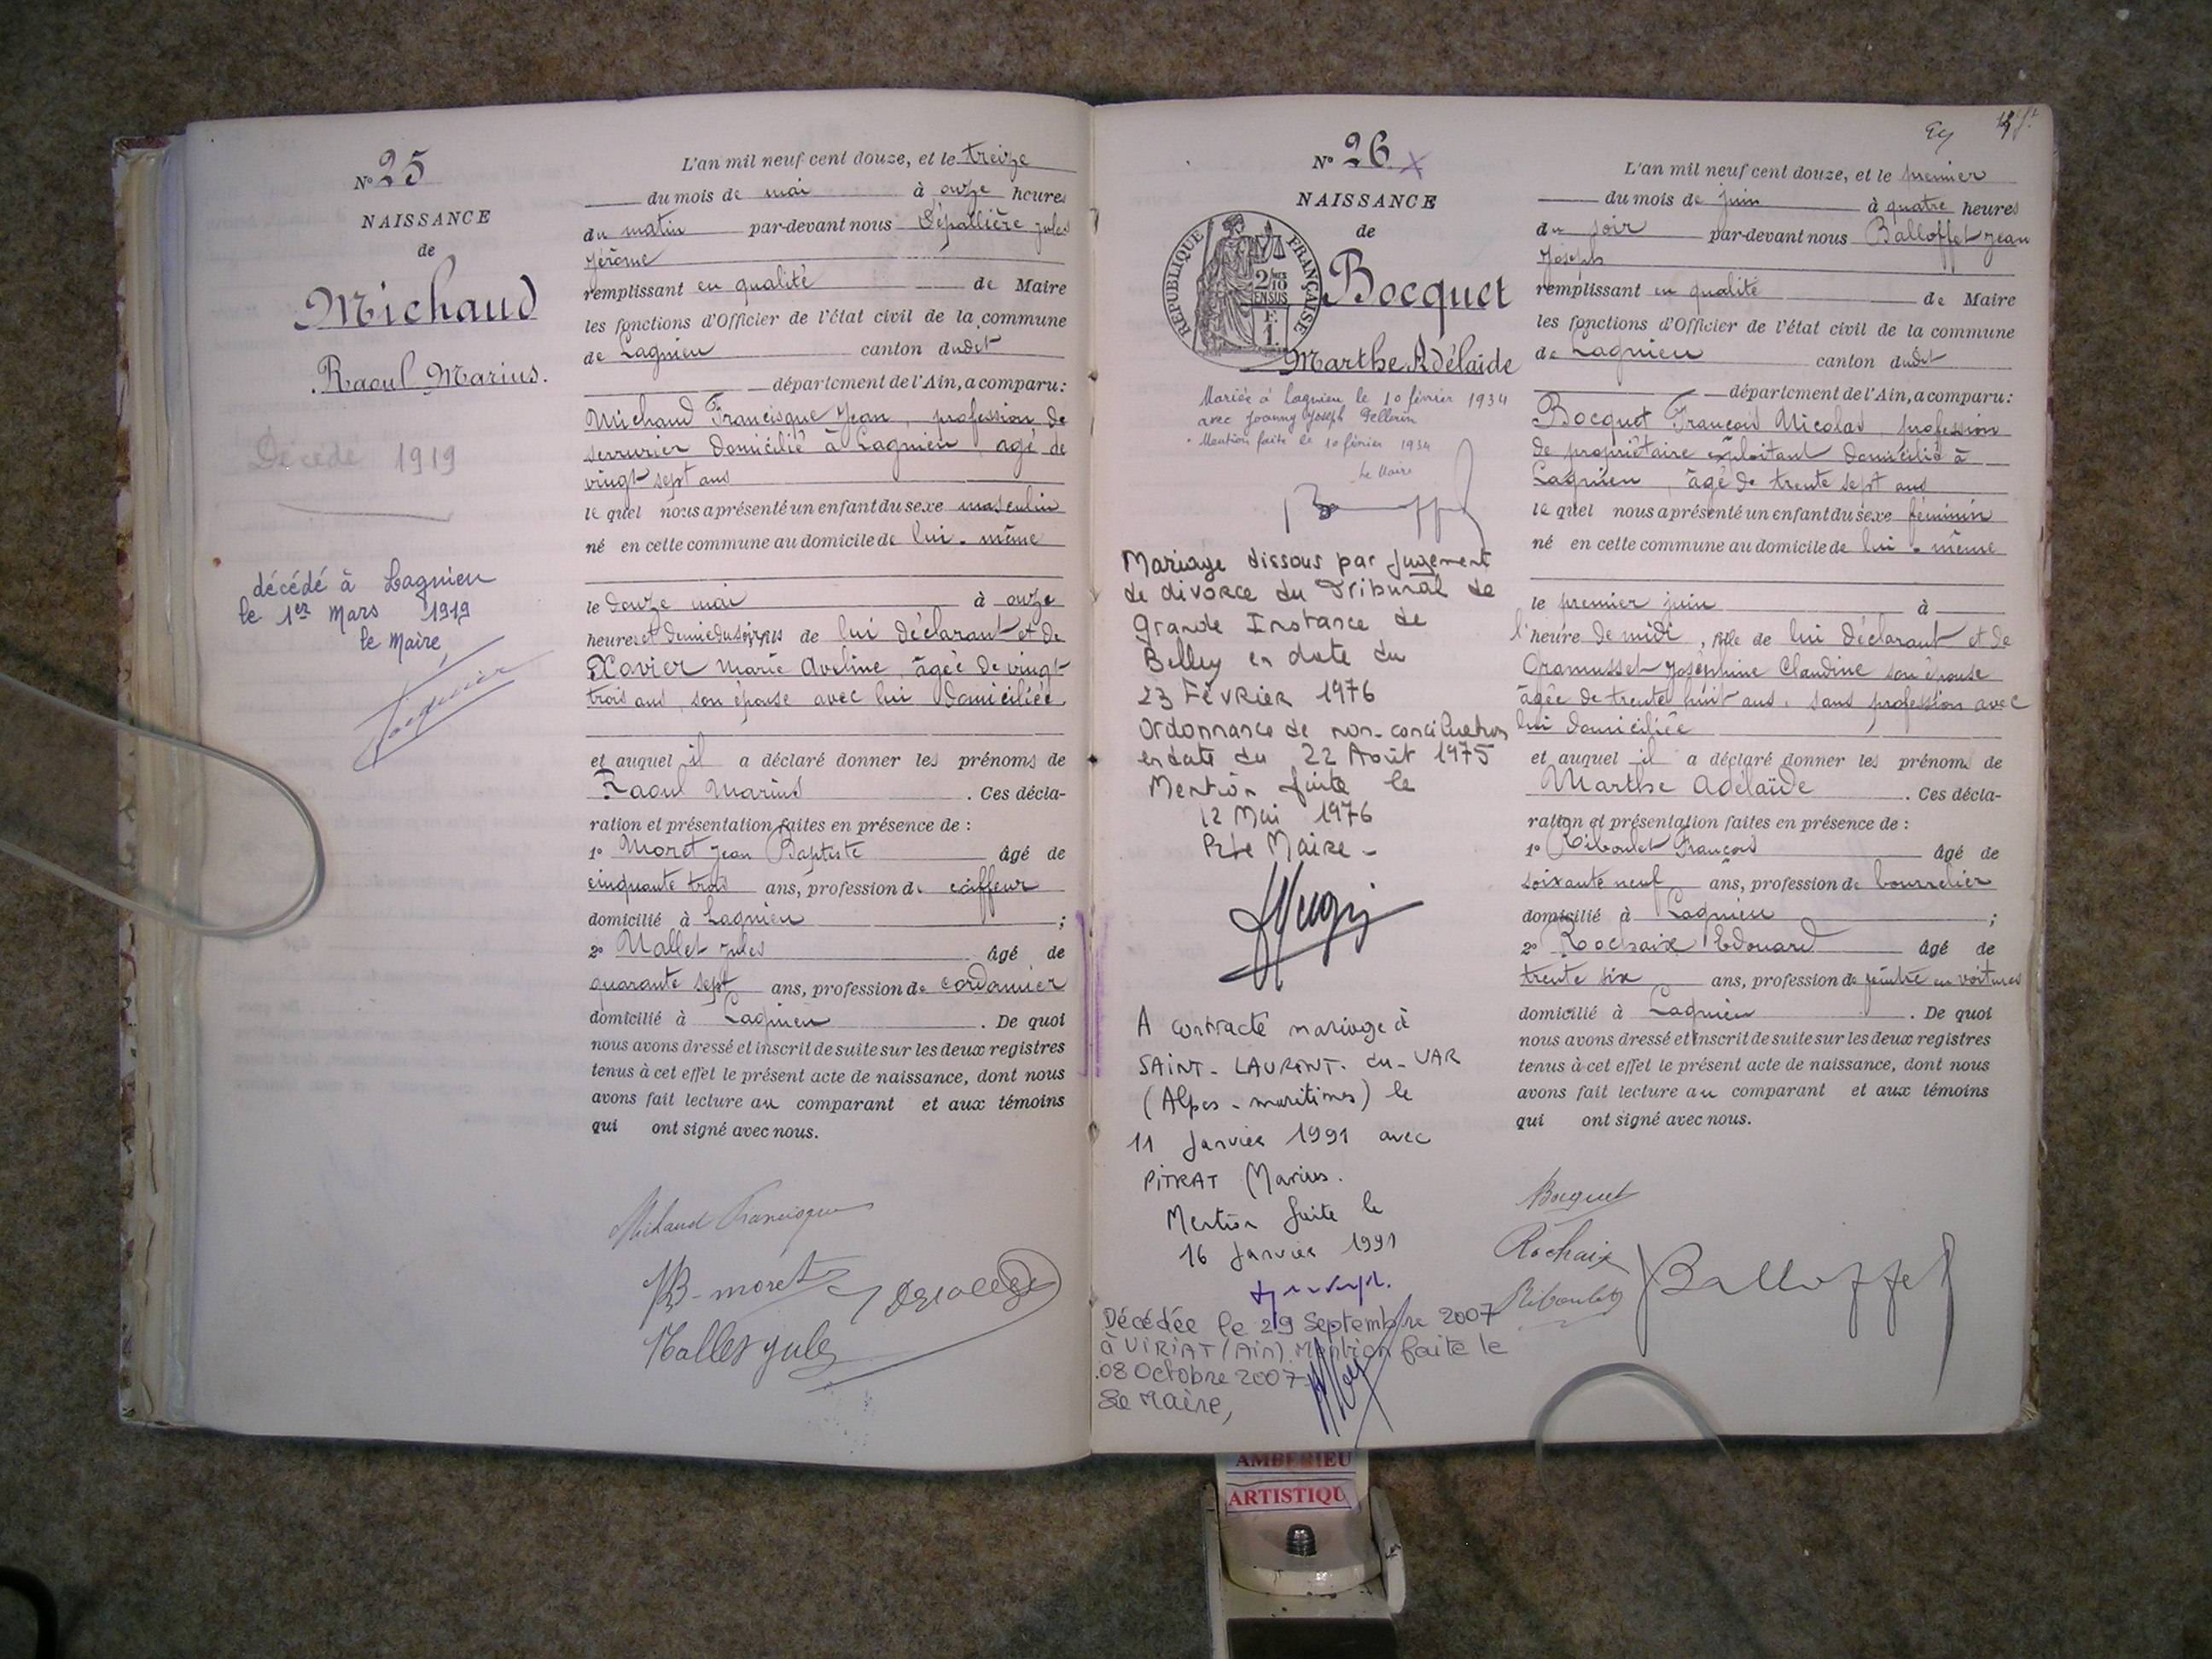 N° 25
NAISSANCE
de
Michaud
Raoul Marius.
Décédé 1919
décédé à Lagnieu
le 1er Mars 1919
le Maire
L'an mil neuf cent douze, et le treize
du mois de mai à onze heures
du matin par-devant nous Dépallière Jules
Jérôme
remplissant en qualité de Maire
les fonctions d'Officier de l'état civil de la commune
de Lagnieu canton dudit
département de l'Ain, a comparu:
Michaud Francisque Jean, profession de
serrurier domicilié à Lagnieu, agé de
vingt sept ans
le quel nous a présenté un enfant du sexe masculin
né en cette commune au domicile de lui-même
le douze mai à onze
heures et demie du soir, fils de lui déclarant et de
Xavier Marie Aveline, âgée de vingt-
trois ans, son épouse avec lui domiciliée
et auquel il a déclaré donner les prénoms de
Raoul Marius. Ces décla-
ration et présentation faites en présence de :
1° Moret Jean Baptiste âgé de
cinquante trois ans, profession de coiffeur
domicilié à Lagnieu ;
2° Mallet Jules âgé de
quarante sept ans, profession de cordonnier
domicilié à Lagnieu. De quoi
nous avons dressé et inscrit de suite sur les deux registres
tenus à cet effet le présent acte de naissance, dont nous
avons fait lecture au comparant et aux témoins
qui ont signé avec nous.
Michaud Francisque
JB-moret
Mallet Jules
N° 26 X
NAISSANCE
de
RÉPUBLIQUE FRANÇAISE
2/10
EN SUS
F.
1.
Bocquet
Marthe Adélaide
Mariée à Lagnieu le 10 février 1934
avec Joanny Joseph Pellerin
Mention faite le 10 février 1934
Le Maire
Mariage dissous par Jugement
de divorce du Tribunal de
Grande Instance de
Belley en date du
23 Février 1976
Ordonnance de non-conciliation
en date du 22 Août 1975
Mention faite le
12 Mai 1976
Le Maire -
A contracté mariage à
SAINT-LAURENT-du-VAR
(Alpes-maritimes) le
11 Janvier 1991 avec
PITRAT Marius.
Mention faite le
16 Janvier 1991
Décédée le 29 Septembre 2007
à VIRIAT (Ain). Mention faite le
08 Octobre 2007.
Le Maire,
L'an mil neuf cent douze, et le premier
du mois de juin à quatre heures
du soir par-devant nous Balloffet Jean
Joseph
remplissant en qualité de Maire
les fonctions d'Officier de l'état civil de la commune
de Lagnieu canton dudit
département de l'Ain, a comparu:
Bocquet François Nicolas, profession
de propriétaire exploitant domicilié à
Lagnieu, âgé de trente sept ans
le quel nous a présenté un enfant du sexe féminin
né en cette commune au domicile de lui-même
le premier juin à
l'heure de midi, fille de lui déclarant et de
Joséphine Claudine son épouse
âgée de trente huit ans, sans profession avec
lui domiciliée
et auquel il a déclaré donner les prénoms de
Marthe Adélaïde. Ces décla-
ration et présentation faites en présence de :
1° Riboulet François âgé de
soixante neuf ans, profession de bourrelier
domicilié à Lagnieu ;
2° Rochaix Edouard âgé de
trente six ans, profession de peintre en voitures
domicilié à Lagnieu. De quoi
nous avons dressé et inscrit de suite sur les deux registres
tenus à cet effet le présent acte de naissance, dont nous
avons fait lecture au comparant et aux témoins
qui ont signé avec nous.
Bocquet
Rochaix
Riboulet
Balloffet
AMBERIEU
ARTISTIQU